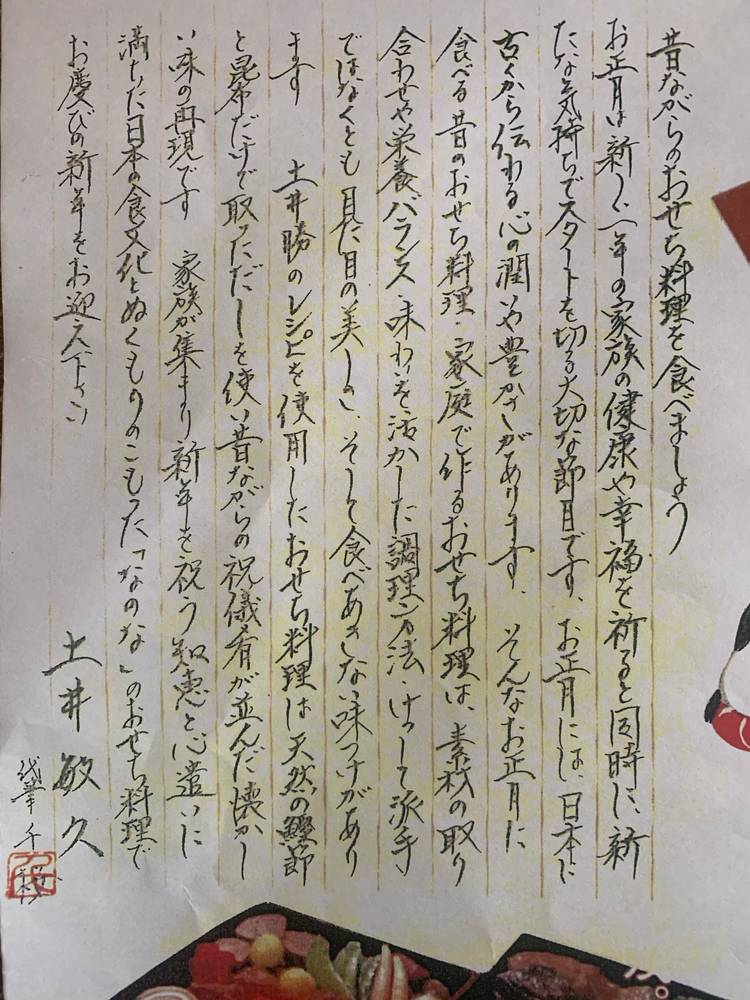 昔ながらのおせち料理を食べましょう
お正月は新しく一年の家族の健康や幸福を祈ると同時に、新
たな気持ちでスタートを切る大切な節目です、お正月には、日本に
古くから伝わる心の潤いや豊かさがあります、そんなお正月に
食べる昔のおせち料理・家庭で作るおせち料理は、素材の取り
合わせや栄養バランス・味わいを活かした調理方法・けっして派手
ではなくとも見た目の美しさ、そして食べあきない味つけがあり
ます 土井勝のレシピを使用したおせち料理は天然の鰹節
と昆布だけで取っただしを使い昔ながらの祝儀肴が並んだ懐かし
い味の再現です 家族が集まり新年を祝う知恵と心遣いに
満ちた日本の食文化とぬくもりのこもった「なのな」のおせち料理で
お慶びの新年をお迎え下さい
土井敏久
代筆 千